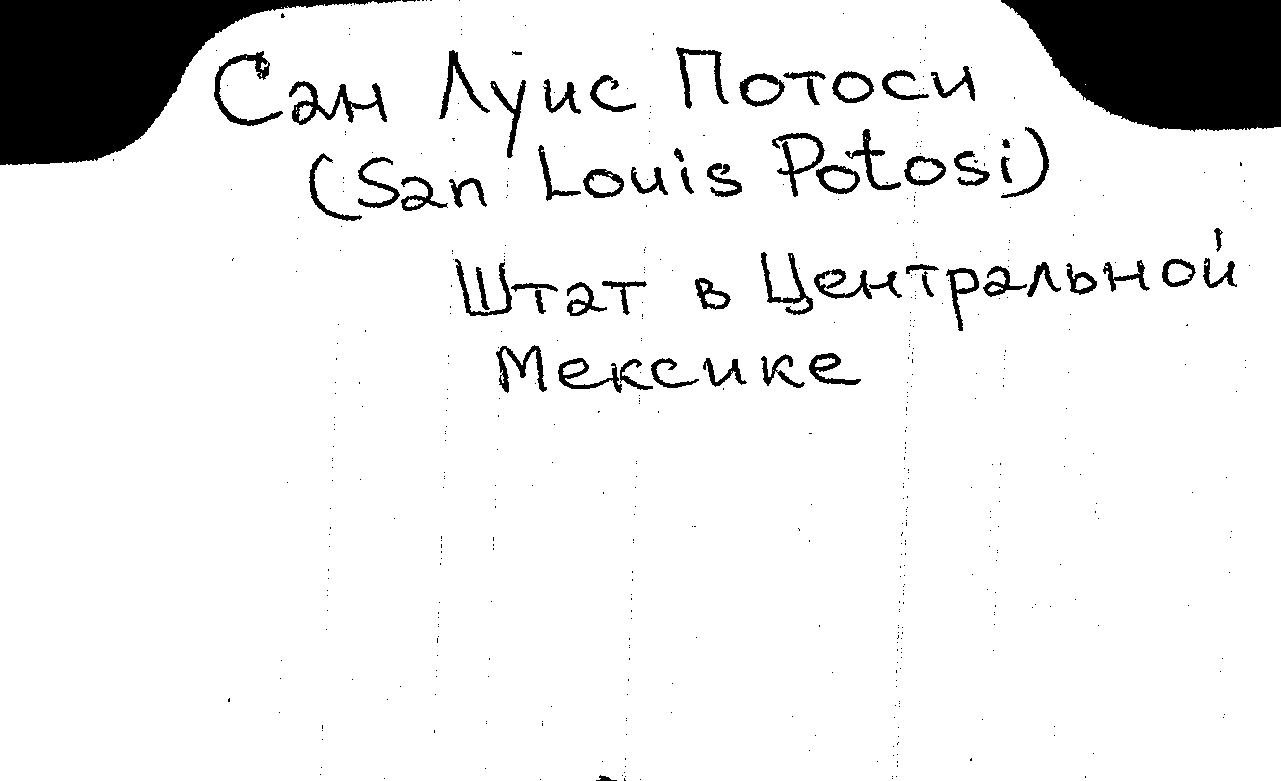 Сан Луис Потоси
(San Louis Potosi)
Штат в Центральной
Мексике